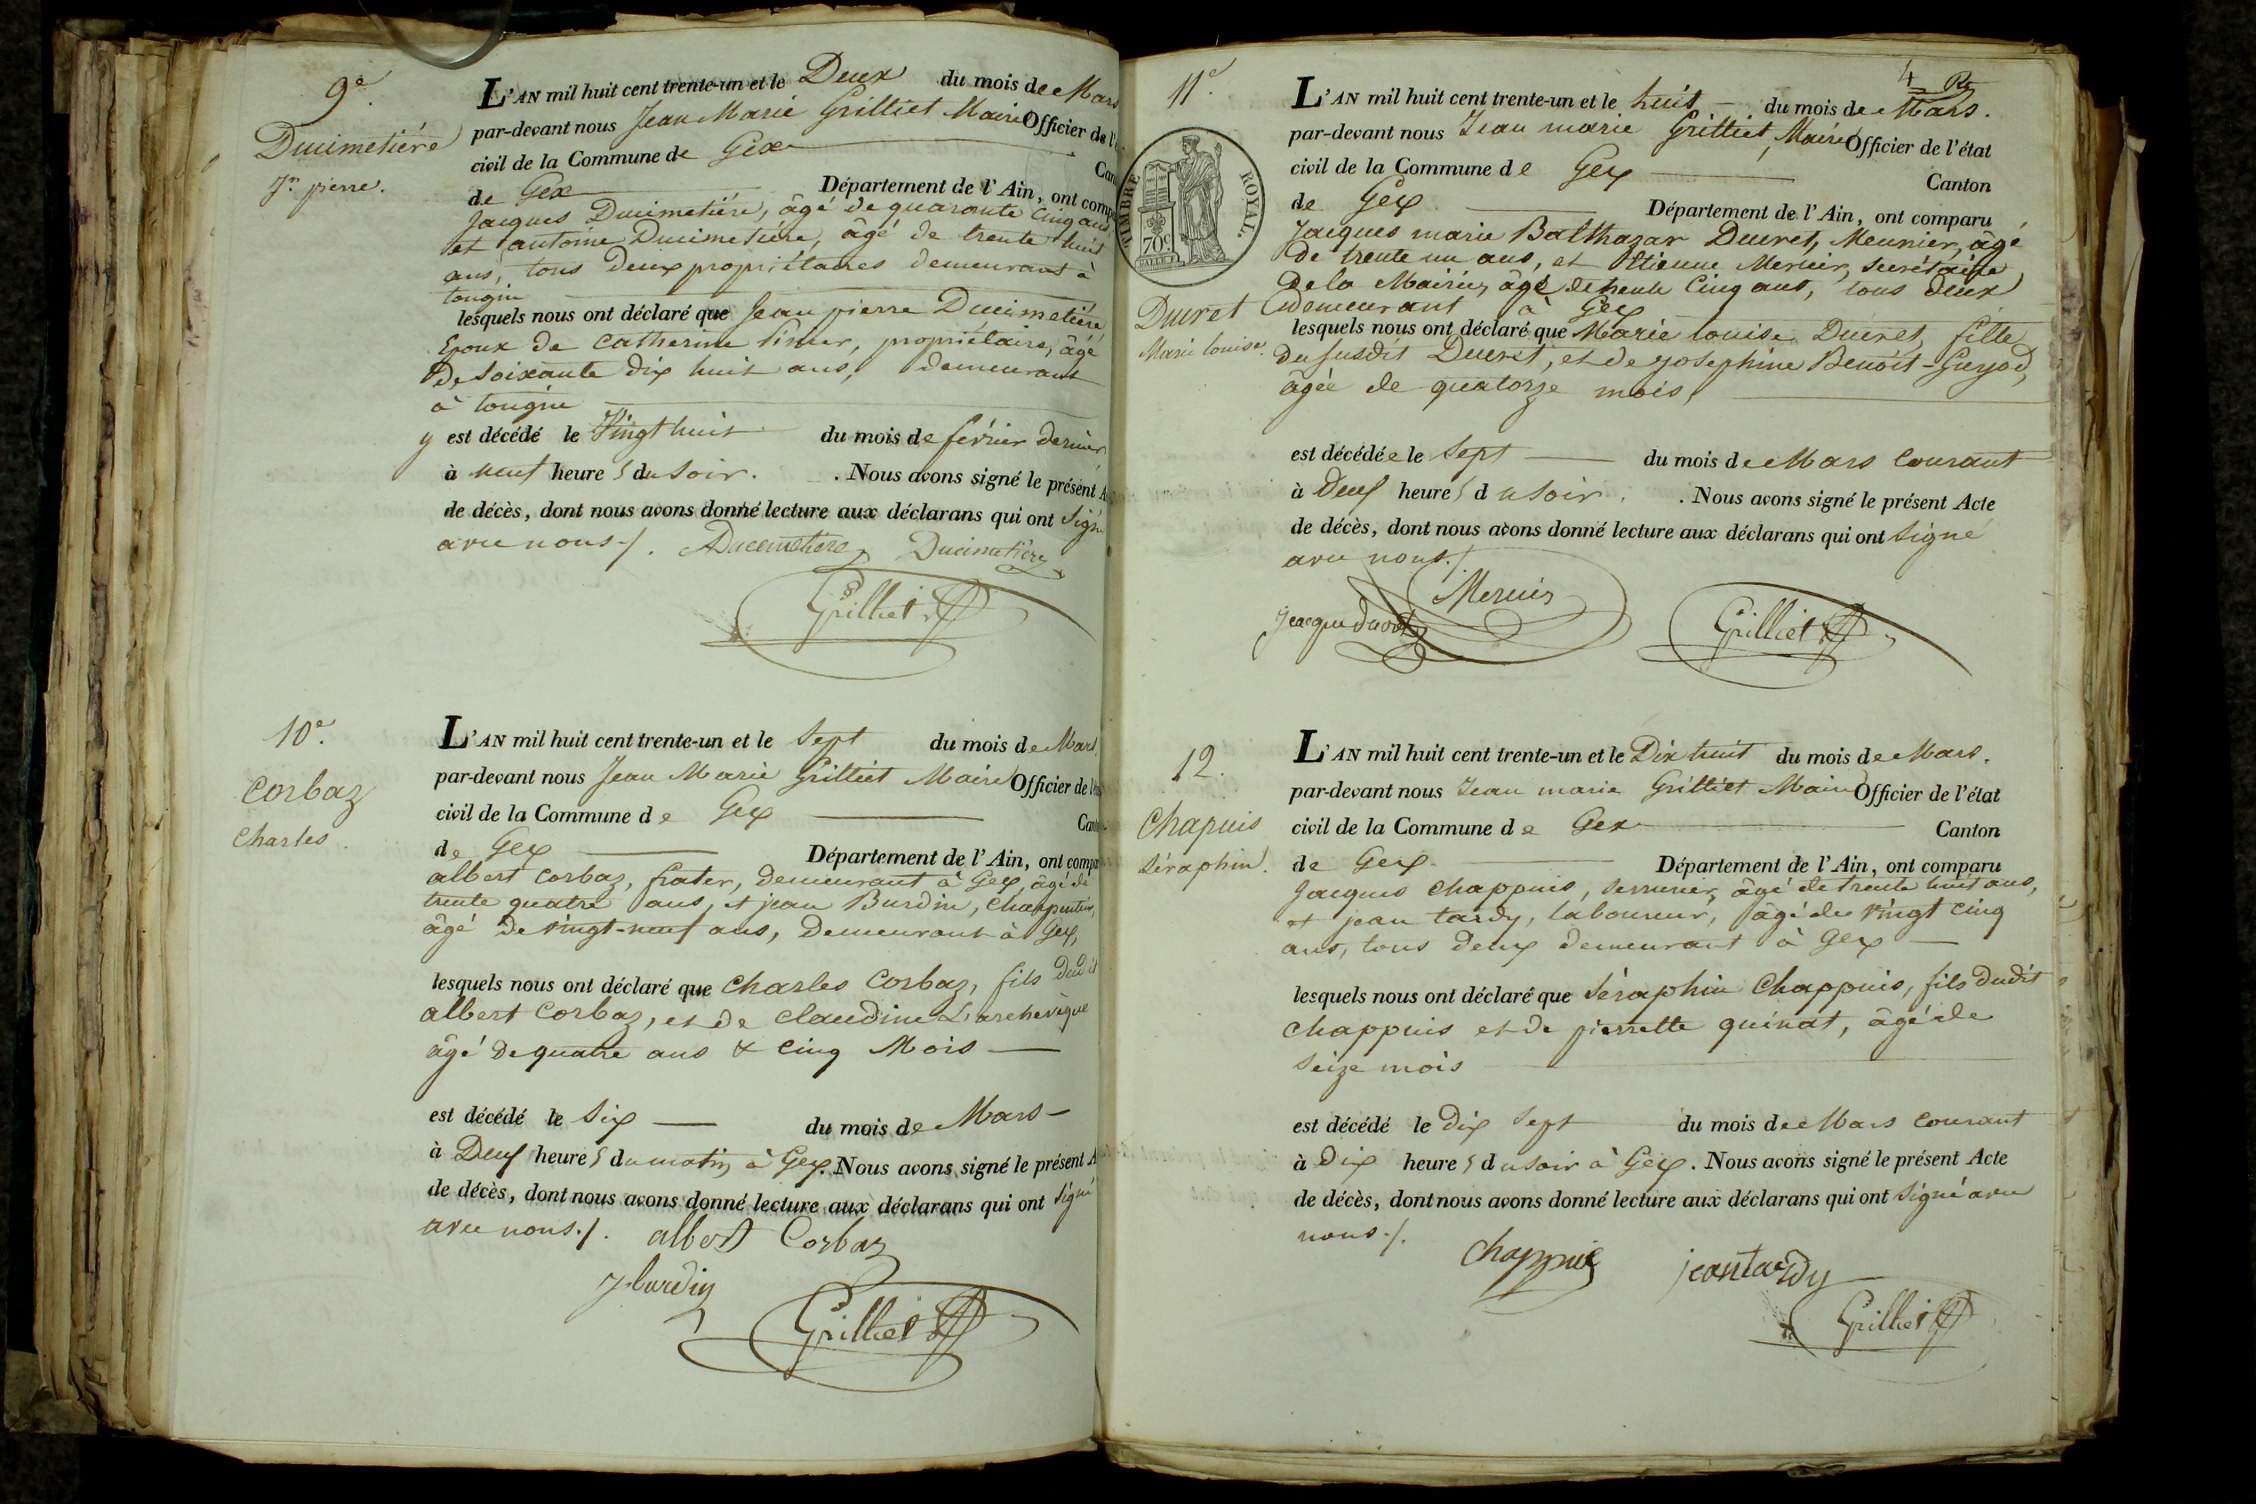 9e.
Ducimetière
Jn pierre.
L'AN mil huit cent trente-un et le Deux du mois de Mars
par-devant nous Jean Marie Grilliet Maire Officier de l'é
civil de la Commune de Gex
Can
de Gex Département de l'Ain, ont comp
Jacques Ducimetière, âgé de quarante cinq ans
et antoine Ducimetière, âgé de trente huit
ans, tous deux propriétaires demeurant à
tougin
lesquels nous ont déclaré que Jean pierre Ducimetière
Epoux de Catherine , propriétaire, âgé
de soixante dix huit ans, demeurant
à tougin
y est décédé le Vingt huit du mois de février dernier
à neuf heures du soir. . Nous avons signé le présent A
de décès, dont nous avons donné lecture aux déclarans qui ont signé
avec nous./. ADucimetiere Ducimetière
Grilliet
10e.
Corbaz
Charles.
L'AN mil huit cent trente-un et le Sept du mois de Mars
par-devant nous Jean Marie Grilliet Maire Officier de l'
civil de la Commune de Gex
Can
de Gex Département de l'Ain, ont compa
albert Corbaz, frater, demeurant à Gex, âgé de
trente quatre ans, et jean Burdin, Charpentier,
âgé de vingt-neuf ans, Demeurant à Gex,
lesquels nous ont déclaré que Charles Corbaz, fils dudit
albert Corbaz, et de Claudine L'archevêque
âgé de quatre ans & cinq Mois
est décédé le Six du mois de Mars
à Deux heures du matin à Gex. Nous avons signé le présent A
de décès, dont nous avons donné lecture aux déclarans qui ont signé
avec nous./. albert Corbaz
J burdin
Grilliet
4
11e.
TIMBRE ROYAL.
70c
Ducret
Marie louise.
L'AN mil huit cent trente-un et le huit du mois de Mars.
par-devant nous Jean marie Grilliet, Maire Officier de l'état
civil de la Commune de Gex
Canton
de Gex Département de l'Ain, ont comparu
Jacques marie Balthazar Ducret, Meunier, âgé
de trente un ans, et Etienne Mercier, secrétaire
de la Mairie, âgé de trente cinq ans, tous deux
demeurant à Gex
lesquels nous ont déclaré que Marie louise Ducret, fille
du susdit Ducret, et de josephine Benoit-Guyod,
âgée de quatorze mois,
est décédée le Sept du mois de Mars courant
à Deux heures du soir. . Nous avons signé le présent Acte
de décès, dont nous avons donné lecture aux déclarans qui ont signé
avec nous./.
Mercier
Jacque ducret
Grilliet
12.
Chapuis
Séraphin.
L'AN mil huit cent trente-un et le Dix huit du mois de Mars.
par-devant nous Jean marie Grilliet Maire Officier de l'état
civil de la Commune de Gex
Canton
de Gex Département de l'Ain, ont comparu
Jacques Chappuis, serrurier, âgé de trente huit ans,
et jean tardy, laboureur, âgé de vingt cinq
ans, tous deux demeurant à Gex
lesquels nous ont déclaré que Séraphin Chappuis, fils dudit
Chappuis et de pierrette quinat, âgé de
Seize mois
est décédé le dix Sept du mois de Mars courant
à Dix heures du soir à Gex. Nous avons signé le présent Acte
de décès, dont nous avons donné lecture aux déclarans qui ont signé avec
nous./.
Chappuis jean tardy
Grilliet